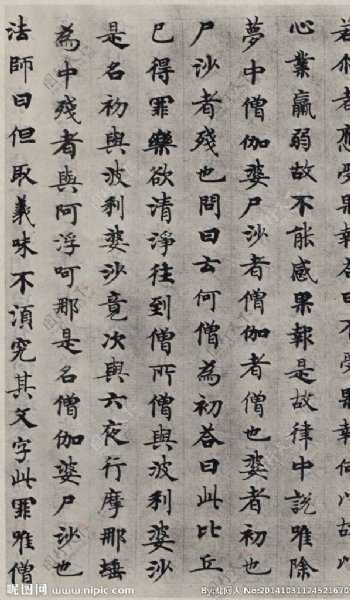 若作者應受果報答曰不受果報何以故以
心業羸弱故不能感果報是故律中說唯除
夢中僧伽婆尸沙者僧伽者僧也婆者初也
尸沙者殘也問曰云何僧為初答曰此比丘
已得罪樂欲清淨往到僧所僧與波利婆沙
是名初與波利婆沙竟次與六夜行摩那埵
為中殘者與阿浮呵那是名僧伽婆尸沙也
法師曰但取義味不須究其文字此罪唯僧
昵图网 www.nipic.com
No:20141031124521670